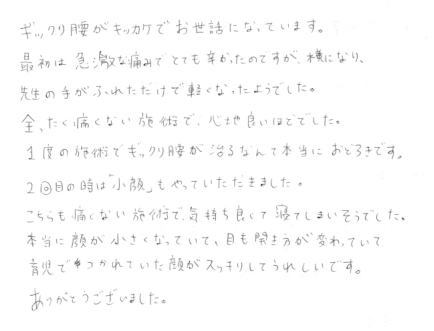 ギックリ腰がキッカケでお世話になっています。
最初は急激な痛みでとても辛かったのですが、横になり、
先生の手がふれただけで軽くなったようでした。
全ったく痛くない施術で、心地良いほどでした。
1度の施術でギックリ腰が治るなんて本当におどろきです。
2回目の時は「小顔」もやっていただきました。
こちらも痛くない施術で気持ち良くて寝てしまいそうでした。
本当に顔が小さくなっていて、目も開き方が変わっていて
育児でつかれていた顔がスッキリしてうれしいです。
ありがとうございました。